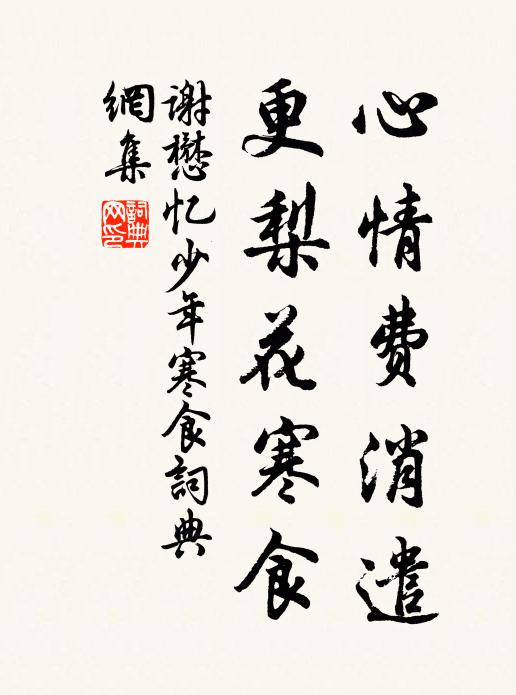 心情費消遣
更梨花寒食
謝懋忆少年寒食詞典
網集
詞典
网印